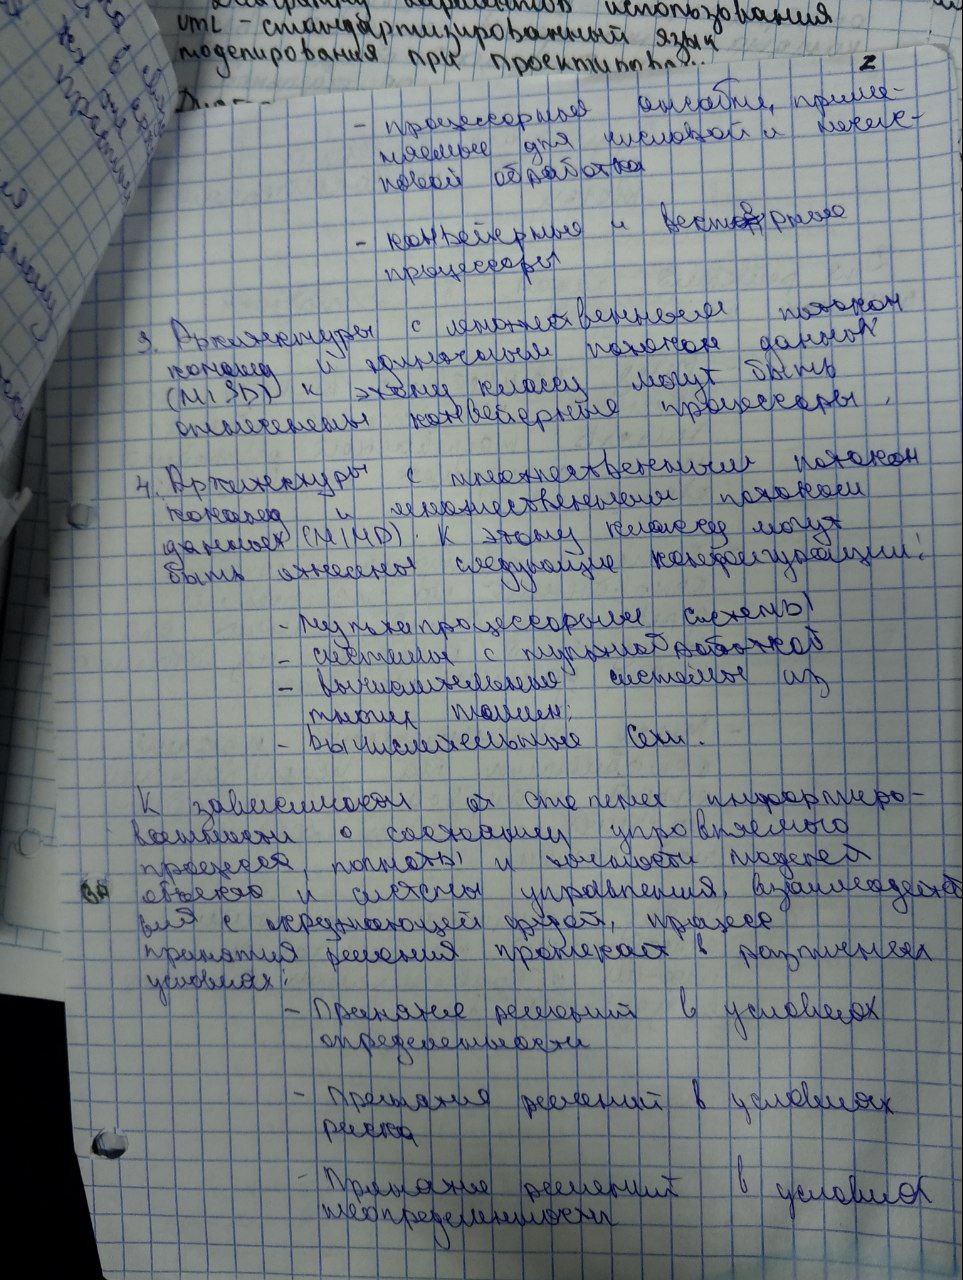 использования
UML - стандартизированный язык
моделирования при
2
- процессорные ансамбли, приме-
няемые для числовой и
обработки
- конвейерные и векторные
процессоры
3. Архитектуры с множественным потоком
команд и одиночным потоком данных
(MISD) к этому классу могут быть
отнесены конвейерные процессоры.
4. Архитектуры с множественным потоком
команд и множественным потоком
данных (MIMD). К этому классу могут
быть отнесены следующие конфигурации:
- мультипроцессорные системы
- системы с обработкой
- вычислительные системы из
многих машин;
- вычислительные сети.
К зависимости от степени информиро-
ванности о состоянии управляемого
процесса, полноты и точности моделей
объекта и системы управления, взаимодейст
вия с окружающей средой, процесс
принятия решения протекает в различных
условиях:
- Принятие решений в условиях
определенности
- Принятия решений в условиях
риска
- Принятие решений в условиях
неопределенности